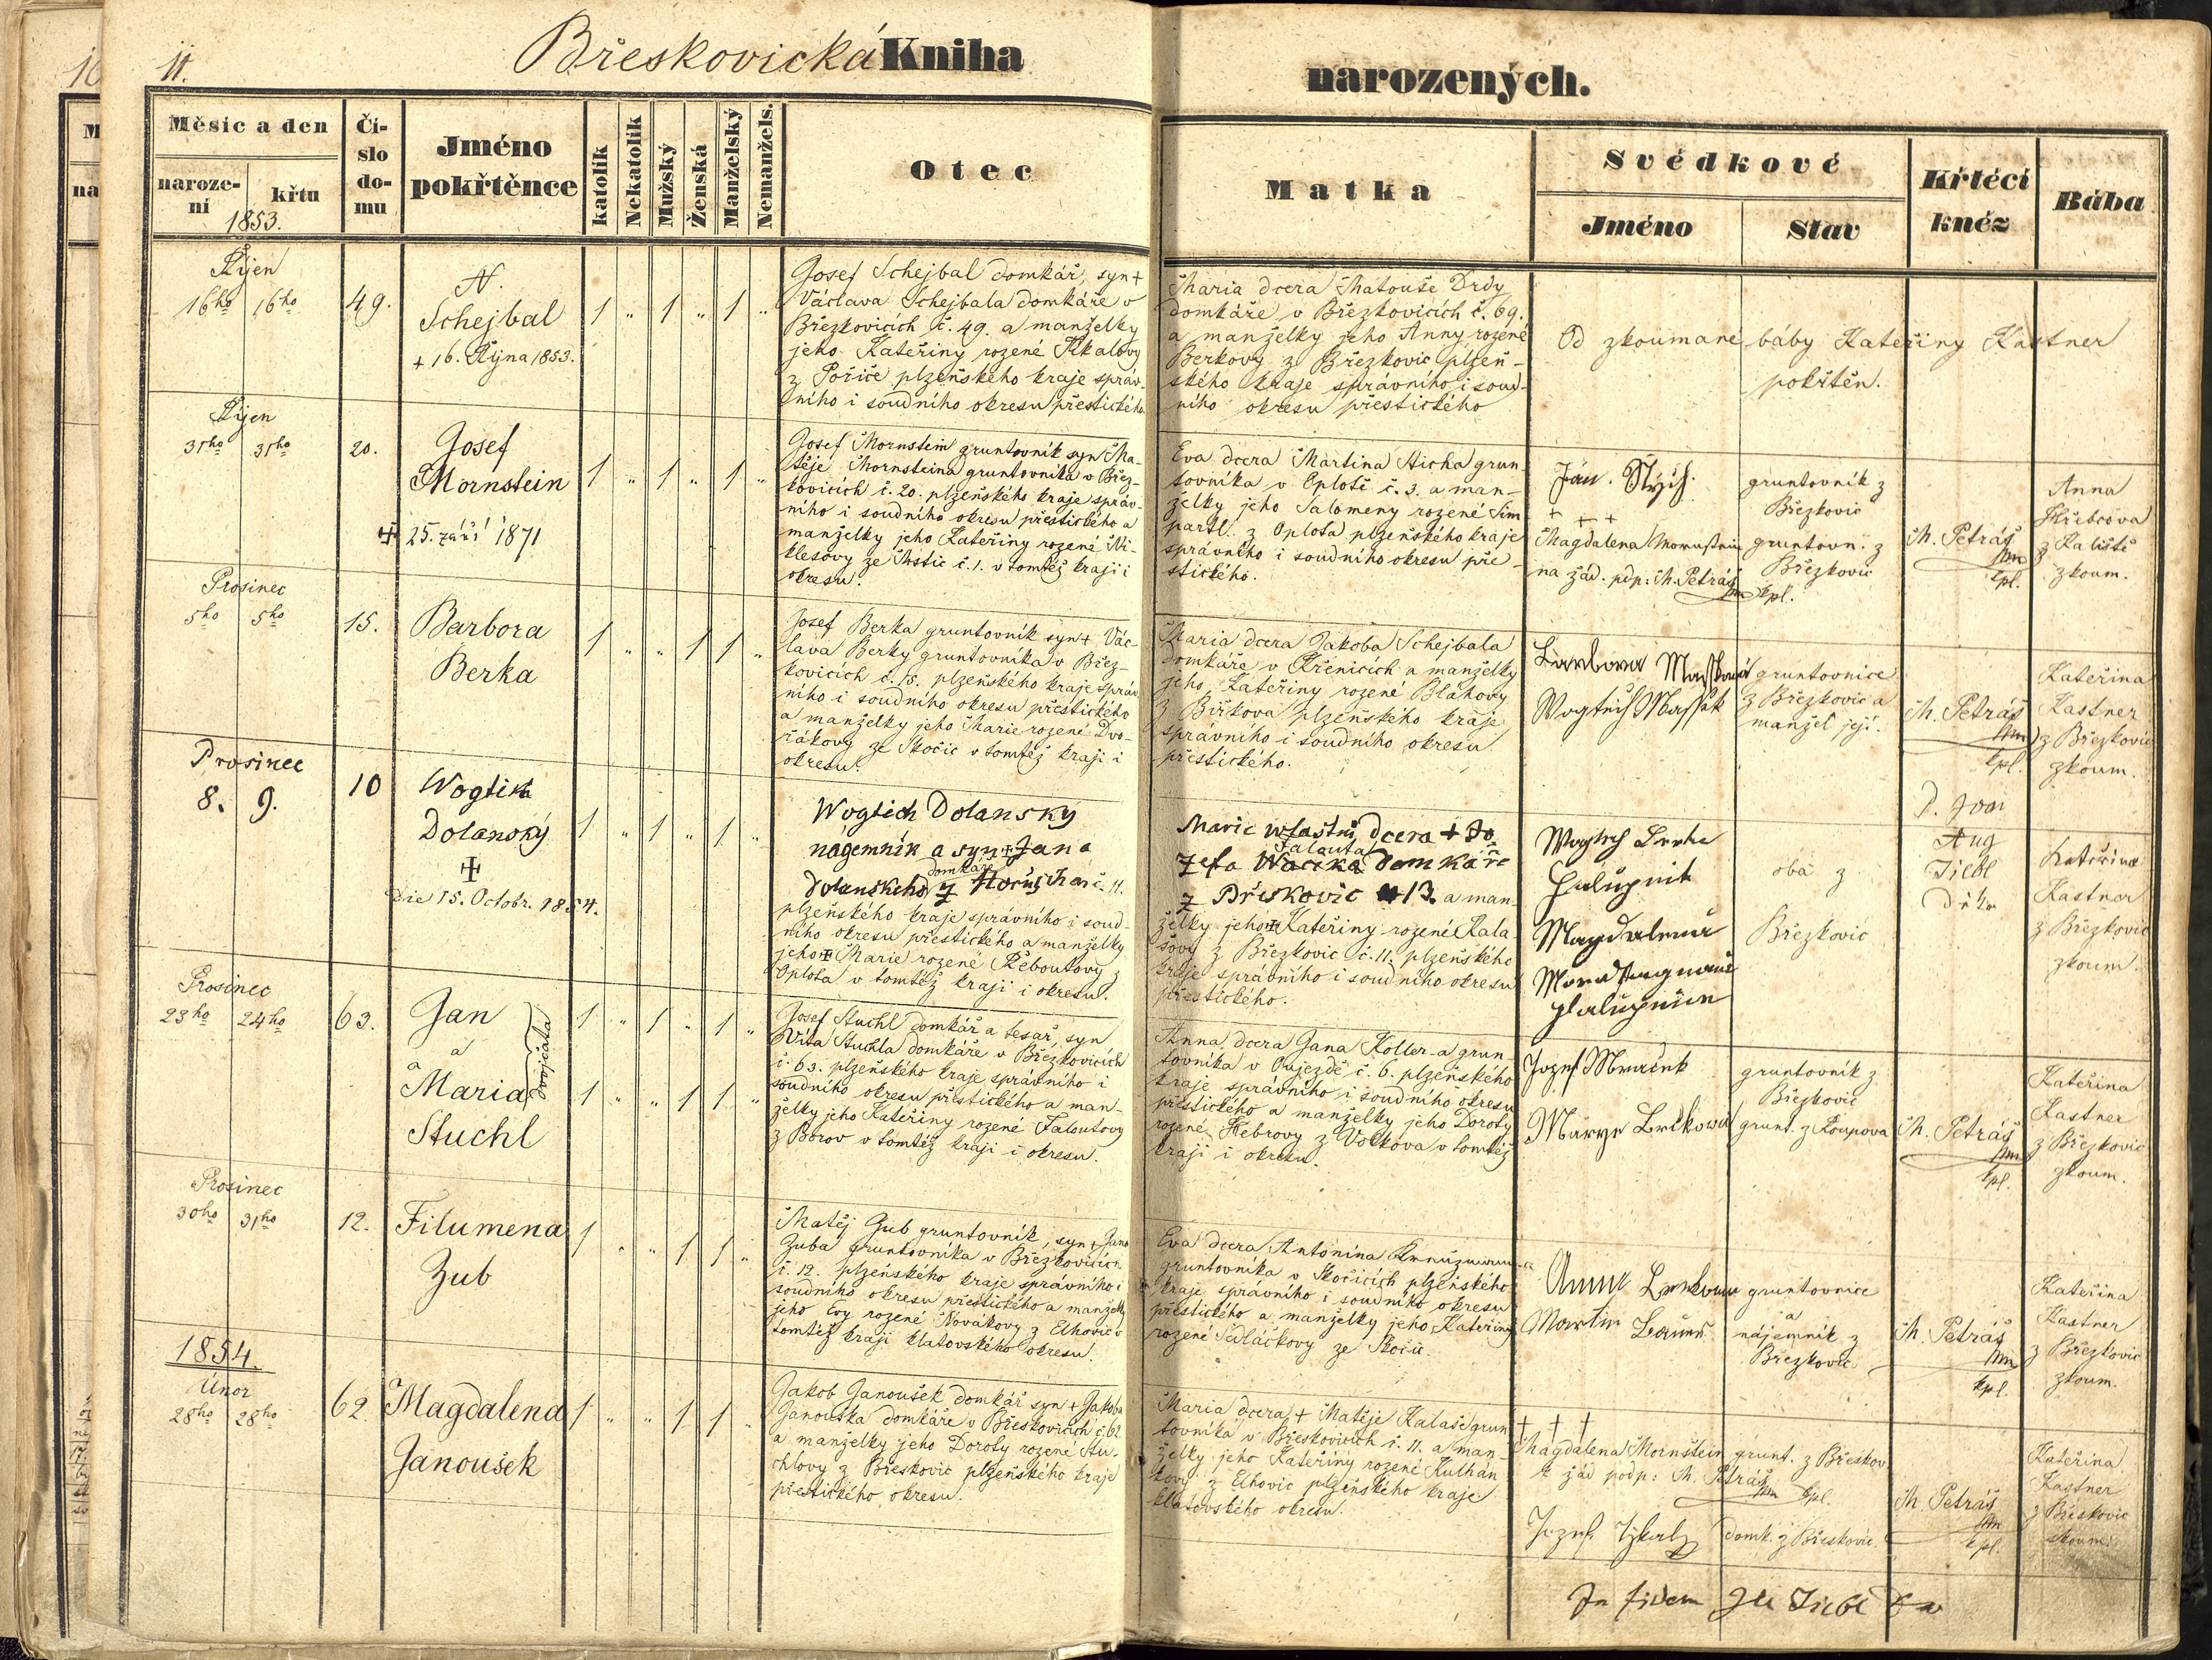 11.
Břeskovická Kniha
narozených.
Měsíc a den
naroze-
ní
křtu
1853.
Čí-
slo
do-
mu
Jméno
pokřtěnce
katolík
Nekatolík
Mužský
Ženská
Manželský
Nemanžels.
Otec
Matka
Svědkové
Jméno
Stav
Křtěcí
kněz
Bába
Říjen
16ho 16ho
49.
N.
Schejbal
+ 16. Října 1853.
1 " 1 " 1 "
Josef Schejbal domkář, syn +
Václava Schejbala domkáře v
Březkovicích č. 49. a manželky
jeho Kateřiny rozené
z Poříče plzeňského kraje správ-
ního i soudního okresu přestického
Maria dcera Matouše Drdy
domkáře v Březkovicích č. 69.
a manželky jeho Anny rozené
Berkovy z Březkovic plzeň-
ského kraje správního i soud-
ního okresu přestického
Od zkoumané báby Kateřiny Kastner
pokřtěn.
Říjen
31ho 31ho
20.
Josef
Mornstein
+ 25. září 1871
1 " 1 " 1 "
Josef Mornstein gruntovník syn Ma-
těje Mornsteina gruntovníka v Břez-
kovicích č. 20. plzeňského kraje správ-
ního i soudního okresu přestického a
manželky jeho Kateřiny rozené Mi-
klesovy ze č. 1. v tomtéž kraji i
okresu.
Eva dcera Martina Sticha grun-
tovníka v Oplotě č. 3. a man-
želky jeho Salomeny rozené Sim
partl. z Oplota plzeňského kraje
správního i soudního okresu pře-
stického.
Jan Stych
+ + +
Magdalena Mornstein
na žád. pdp: M. Petráš
kpl.
gruntovník z
Březkovic
gruntovn. z
Březkovic
M. Petráš
kpl.
Anna
z Kaliště
zkoum.
Prosinec
5ho 5ho
15.
Barbora
Berka
1 " " 1 1 "
Josef Berka gruntovník syn + Vác-
lava Berky gruntovníka v Břez-
kovicích č. 15. plzeňského kraje správ-
ního i soudního okresu přestického
a manželky jeho Marie rozené Dvo-
řákovy ze Skočic v tomtéž kraji i
okresu.
Maria dcera Jakoba Schejbala
domkáře v Křenicích a manželky
jeho Kateřiny rozené Bláhovy
z Bížkova plzeňského kraje
správního i soudního okresu
přestického.
Barbora
Wogtěch
gruntovnice
z Březkovic a
manžel její.
M. Petráš
kpl.
Kateřina
Kastner
z Březkovic
zkoum.
Prosinec
8. 9.
10
Wogtich
Dolanský
+
Die 15. Octobr. 1854.
1 " 1 " 1 "
Wogtich Dolansky
nágemník a syn + Jana
domkáře
Dolanskeho z č. 11.
plzeňského kraje správního i soud-
ního okresu přestického a manželky
jeho + Marie rozené Řeboutovy z
Oplota v tomtéž kraji i okresu.
Marie wlastní dcera + Jo
Falauta
zefa domkáře
z Břeskovic 13. a man-
želky jeho + Kateřiny rozené Kala-
šovy z Březkovic č. 11. plzeňského
kraje správního i soudního okresu
přestického.
Magdalena
oba z
Březkovic
P. Jan
Aug
Kateřina
Kastner
z Březkovic
zkoum.
Prosinec
23ho 24ho
63.
Jan
a
Maria
Stuchl
dvojčata
1 " 1 " 1 "
1 " " 1 1 "
Josef Stuchl domkář a tesař, syn
Víta Stuchla domkáře v Březkovicích
č. 63. plzeňského kraje, správního i
soudního okresu přestického a man-
želky jeho Kateřiny rozené Faloutovy
z Borov v tomtéž kraji i okresu.
Anna, dcera Jana Koller-a grun-
tovníka v Oujezdě č. 6. plzeňského
kraje správního i soudního okresu
přestického a manželky jeho Doroty
rozené Hebrovy z Vlčkova v tomtéž
kraji i okresu.
Jozef Mraček
gruntovník z
Březkovic
grunt. z Roupova
M. Petráš
kpl.
Kateřina
Kastner
z Březkovic
zkoum.
Prosinec
30ho 31ho
12.
Filumena
Zub
1 " " 1 1 "
Matěj Zub gruntovník, syn + Jana
Zuba gruntovníka v Březkovicích
č. 12. plzeňského kraje správního i
soudního okresu přestického a manželky
jeho Evy rozené Novákovy z Elhovic v
tomtéž kraji klatovského okresu.
Eva dcera Antonína
gruntovníka v Skočicích plzeňského
kraje správního i soudního okresu
přestického a manželky jeho Kateřiny
rozené Sedláčkovy ze Skočic.
Anna
Martin
gruntovnice
a
nájemník z
Březkovic
M. Petráš
kpl.
Kateřina
Kastner
z Březkovic
zkoum.
1854.
Únor
28ho 28ho
62.
Magdalena
Janoušek
1 " " 1 1 "
Jakob Janoušek domkář syn + Jakoba
Janouška domkáře v Břeskovicích č. 62
a manželky jeho Doroty rozené Stu-
chlovy z Břeskovic plzeňského kraje
přestického okresu.
Maria dcera + Matěje Kalaše grun-
tovníka v Břeskovicích č. 11. a man-
želky jeho Kateřiny rozené Kulhán
kovy z Elhovic plzeňského kraje
klatovského okresu.
+ + +
Magdalena Mornštein
k žád podp: M. Petráš
kpl.
grunt. z Břeskov.
Jozef
domk. z Břeskovic.
M. Petráš
kpl.
Kateřina
Kastner
z Břeskovic
zkoum.
In fidem